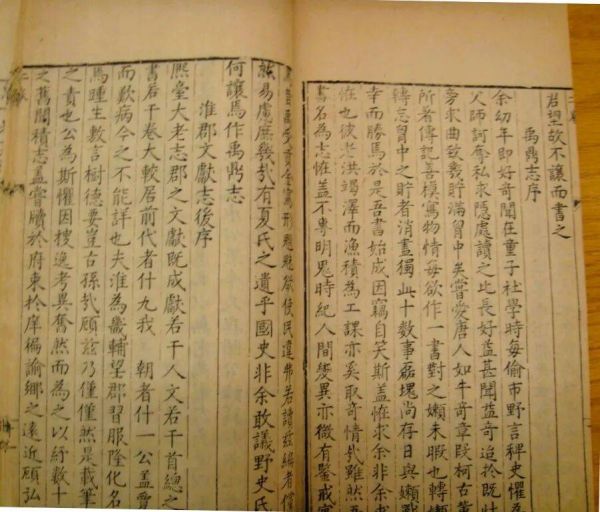 君望故不讓而書之
禹鼎志序
余幼年即好奇聞在童子社學時每偷市野言稗史懼為
父師訶奪私求隱處讀之比長好益甚聞益奇迨於既壯
旁求曲致幾貯滿胷中矣嘗愛唐人如牛奇章段柯古輩
所著傳記善模寫物情每欲作一書對之嬾未暇也轉嬾
轉忘胷中之貯者消盡獨此十數事磊塊尚存日與嬾戰
幸而勝焉於是吾書始成因竊自笑斯蓋怪求余非余求
怪也彼老洪竭澤而漁積為工課亦奚取奇情哉雖然吾
書名為志怪蓋不專明鬼時紀人間變異亦微有鑒戒寓
受貢金寫形魑魅欲使民違弗若讀茲編者儻
然易慮庶幾哉有夏氏之遺乎國史非余敢議野史氏
何讓焉作禹鼎志
淮郡文獻志後序
熈臺大老志郡之文獻既成獻若干人文若干首總之
書若干卷大較居前代者什九我 朝者什一公蓋覽
而歎病今之不能詳也夫淮為畿輔望郡習服隆化名
焉踵生數言樹德要豈古孫哉顧茲乃僅僅然是載筆
之責也公為斯懼因搜逸考異奮然而為之以紓數十
之舊聞積志蓋嘗牘於府東於庠徧諭鄉之遠近顧弘